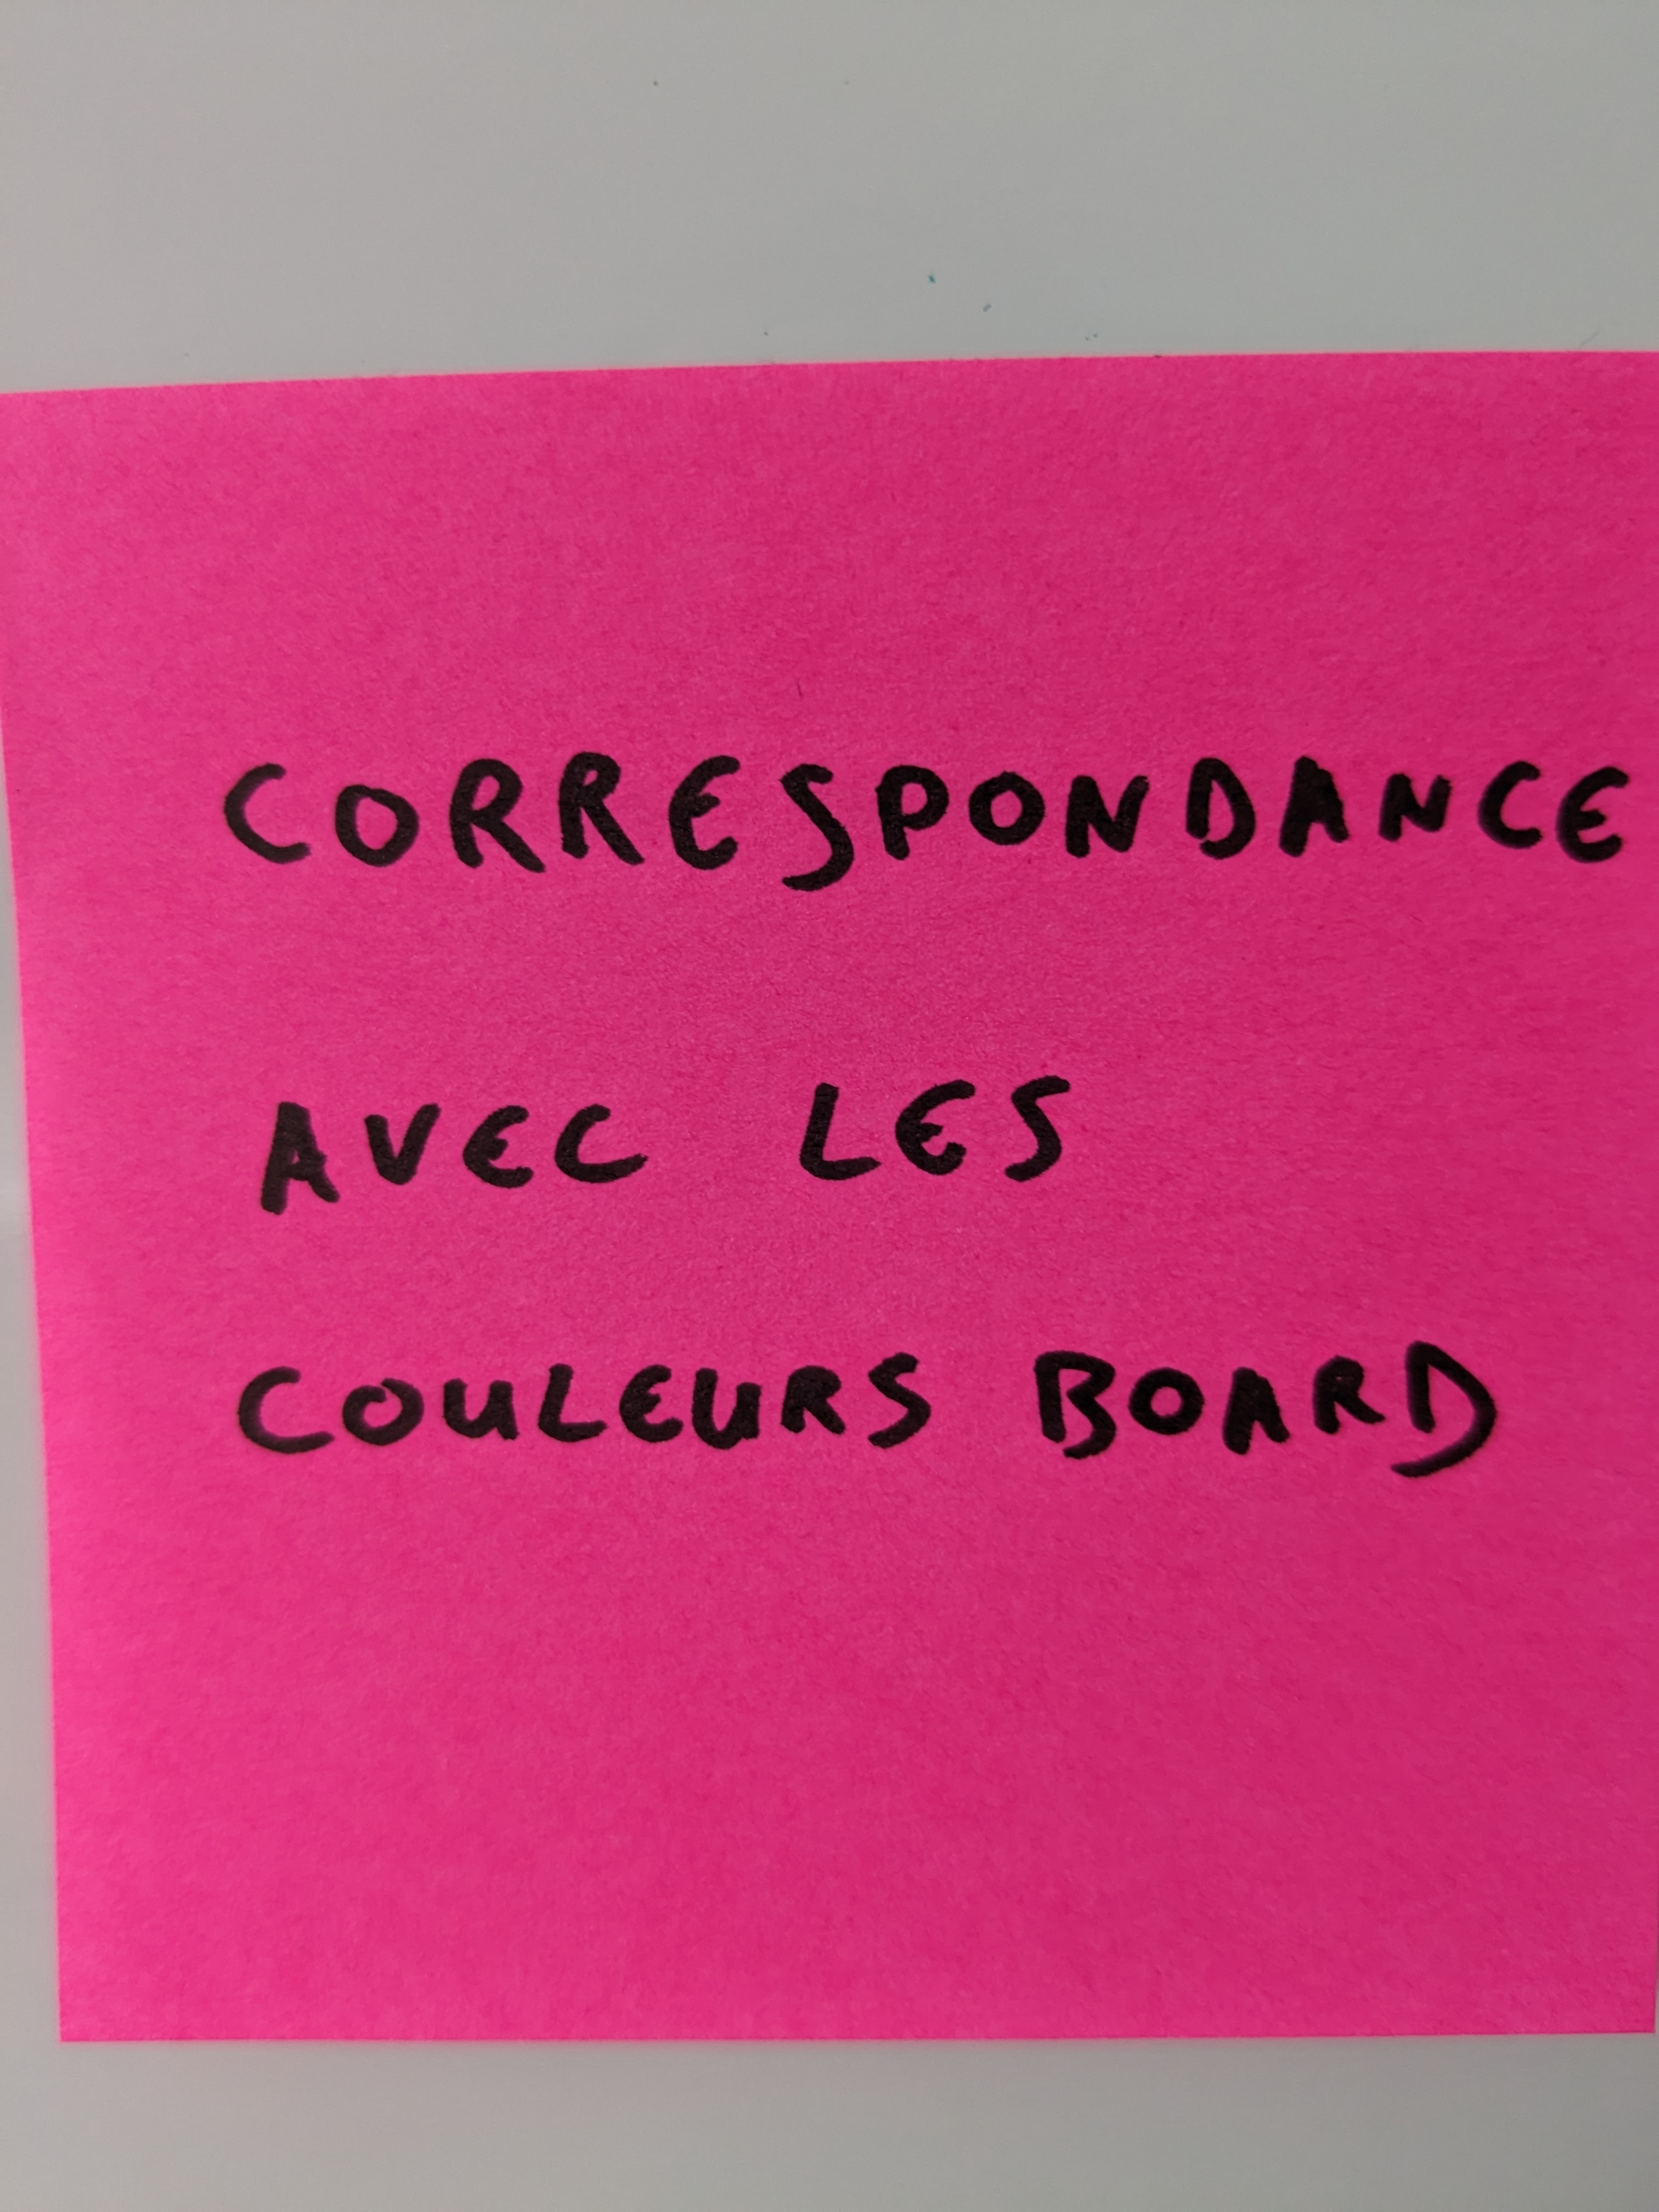 CORRESPONDANCE
AVEC LES
COULEURS BOARD